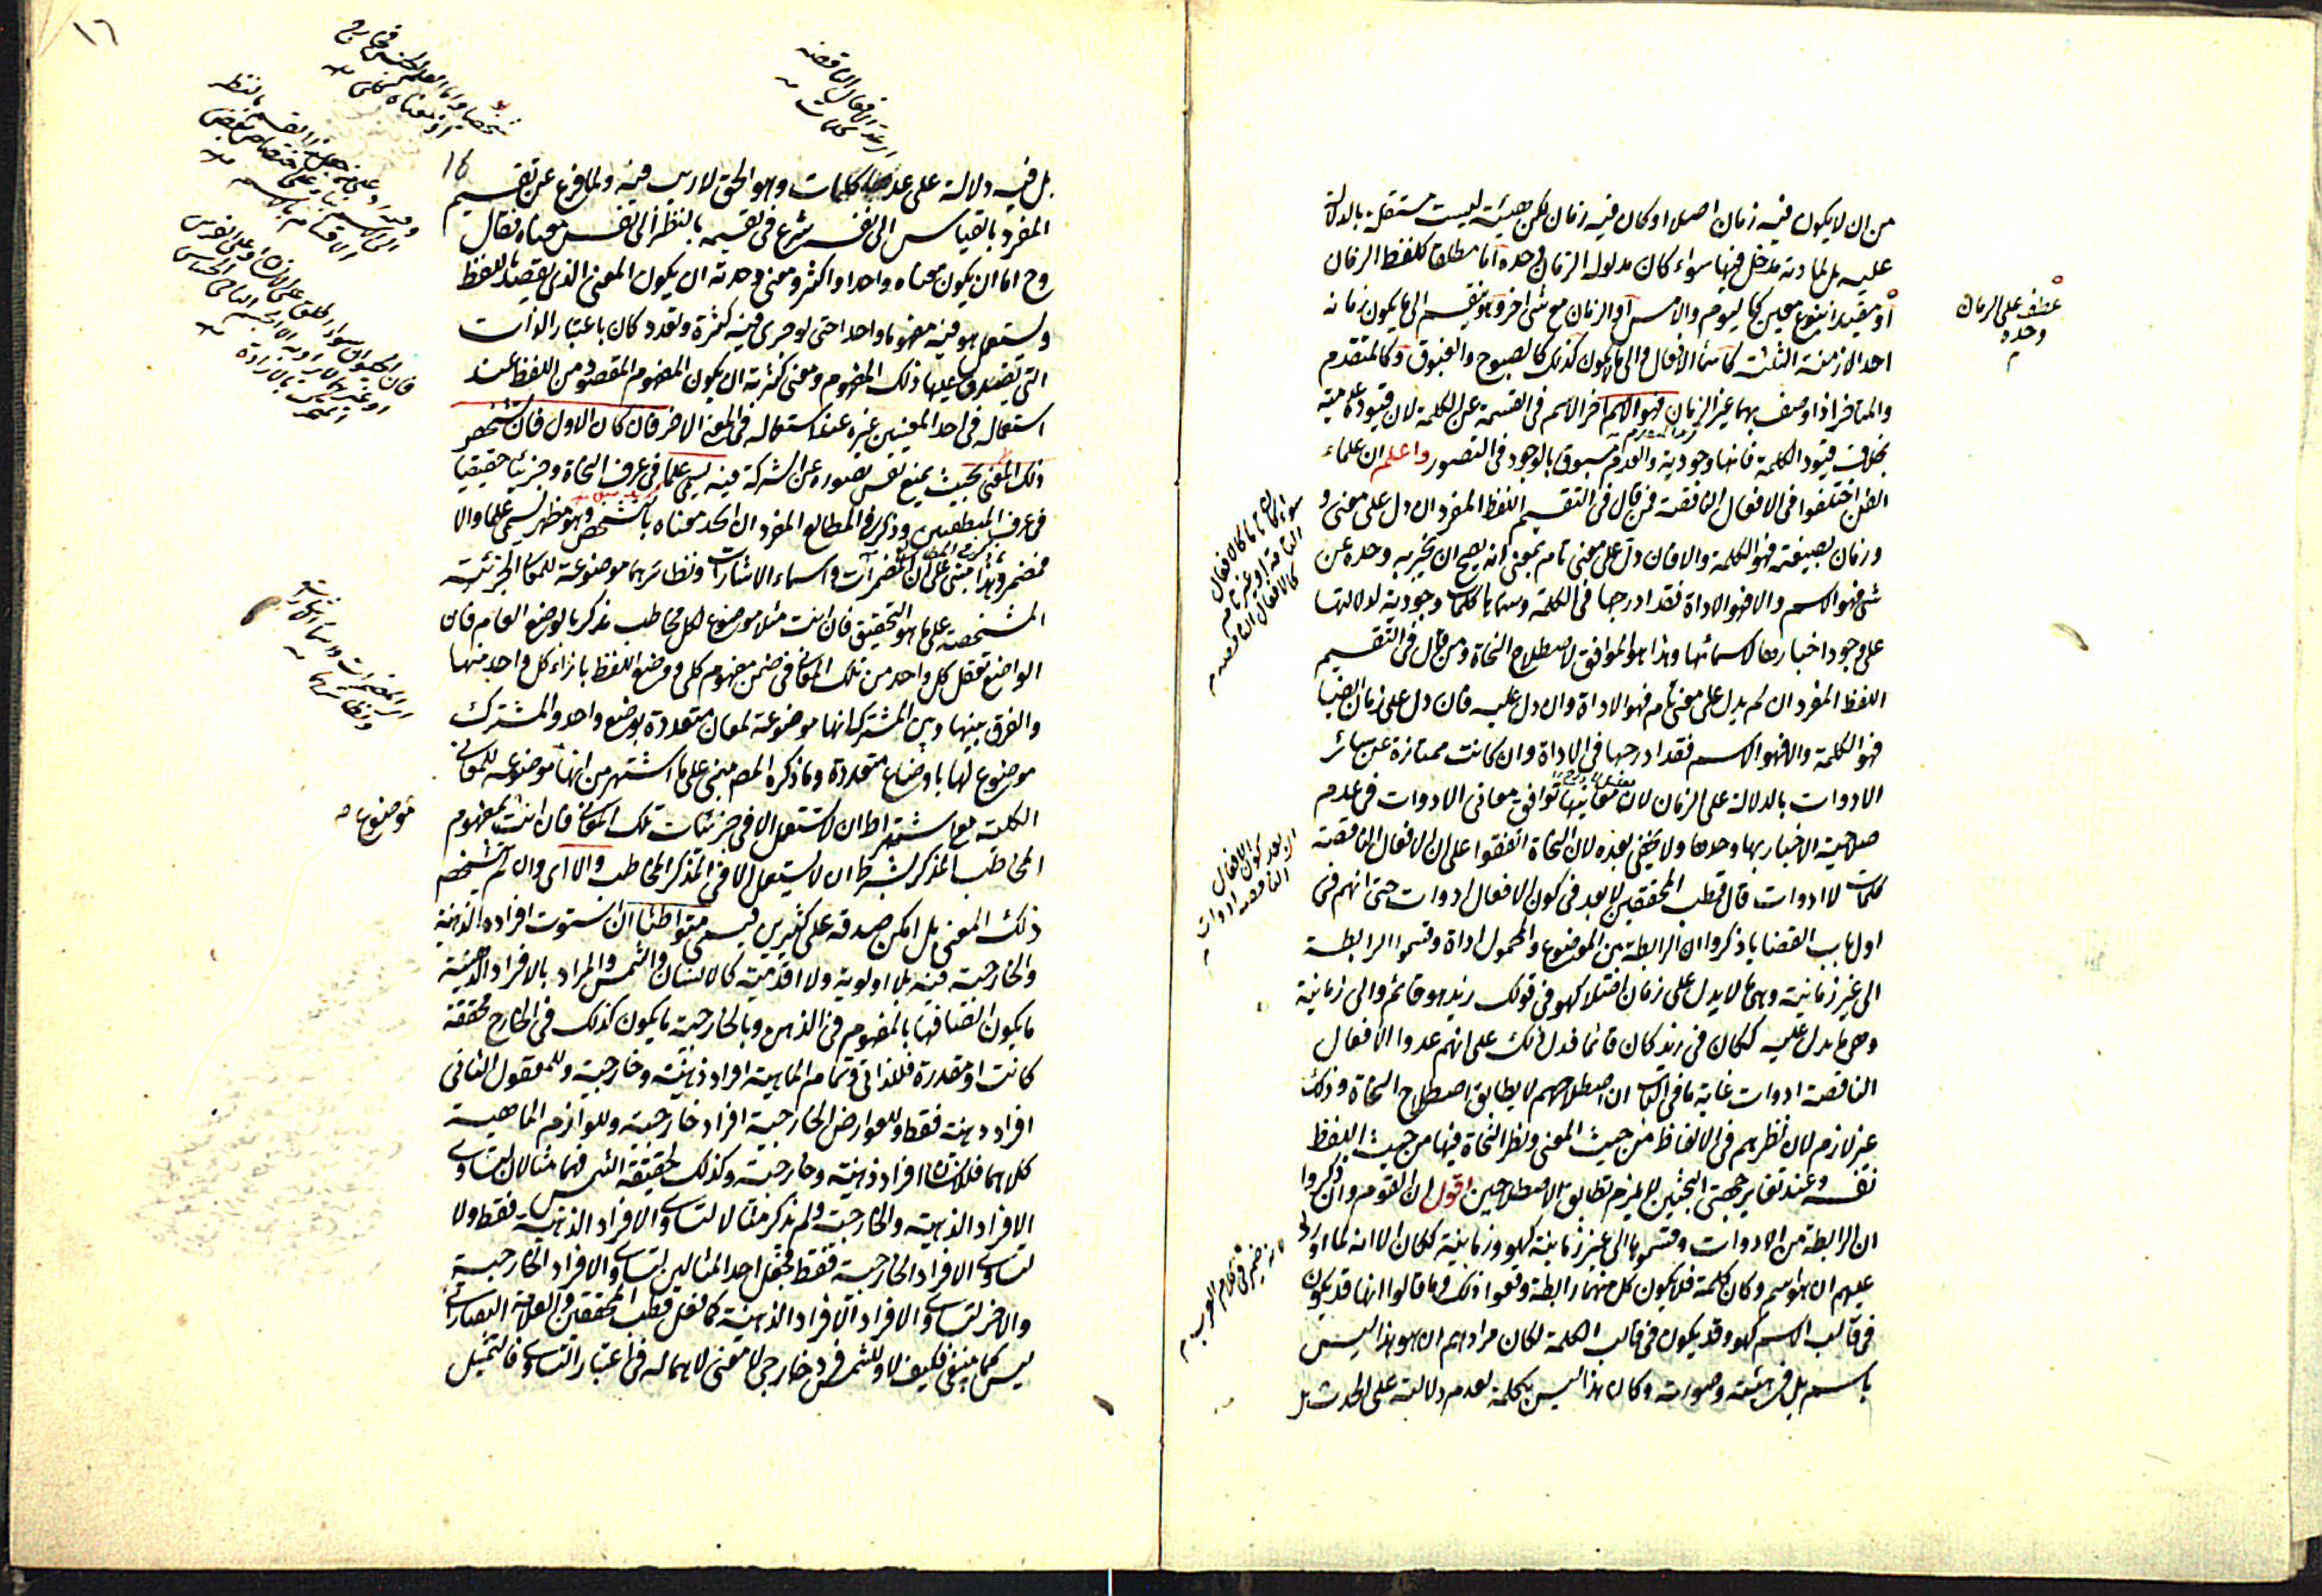 من ان لا يكون فيه زمان اصلا او كان فيه زمان لكن هيئة ليست مستقلة بالدلالة
عليه بل لمادته مدخل فيها سواء كان مدلوله الزمان وحده اما مطلقا كلفظ الزمان
او مقيدا بنوع معين كاليوم والامس او الزمان مع شئ اخر وهو ينقسم الى ما يكون زمانه
احد الازمنة الثلثة كاسماء الافعال والى ما لا يكون كذلك كالصبوح والغبوق وكالمتقدم
والمتاخر اذا وصف بهما غير الزمان فهو الاسم اخر الاسم في القسمة عن الكلمة لان قيوده عدمية
بخلاف قيود الكلمة فانها وجودية والعدم مسبوق بالوجود في التصور واعلم ان علماء
الفن اختلفوا في الافعال الناقصة فمن قال في التقسيم اللفظ المفرد ان دل على معنى و
وزمان بصيغته فهو الكلمة والا فان دل على معنى تام بمعنى انه يصح ان يخبر به وحده عن
شئ فهو الاسم والا فهو الاداة فقد ادرجها في الكلمة وسماها كلمات وجودية لدلالتها
على وجود اخبارها لاسمائها وهذا هو الموافق لاصطلاح النحاة ومن قال في التقسيم
اللفظ المفرد ان لم يدل على معنى تام فهو الاداة وان دل عليه فان دل على زمان ايضا
فهو الكلمة والا فهو الاسم فقد ادرجها في الاداة وان كانت ممتازة عن سائر
الادوات بالدلالة على الزمان لان معانيها توافق معاني الادوات في عدم
صلاحية الاخبار بها وحدها ولا يخفى بعده لان النحاة اتفقوا على ان الافعال الناقصة
كلمات لا ادوات قال قطب المحققين لا بعد في كون الافعال ادوات حتى انهم في
اول باب القضايا ذكروا ان الرابطة بين الموضوع والمحمول اداة وقسموا الرابطة
الى غير زمانية وهي ما لا يدل على زمان اصلا كهو في قولك زيد هو قائم والى زمانية
وهي ما يدل عليه ككان في زيد كان قائما فدل ذلك على انهم عدوا الافعال
الناقصة ادوات غاية ما في الباب ان اصطلاحهم لا يطابق اصطلاح النحاة وذلك
غير لازم لان نظرهم في الالفاظ من حيث المعنى ونظر النحاة فيها من حيث اللفظ
نفسه وعند تغاير جهتي البحثين لا يلزم تطابق الاصطلاحين اقول ان القوم وان ذكروا
ان الرابطة من الادوات وقسموها الى غير زمانية كهو وزمانية ككان الا انه لما اورد
عليهم ان هو اسم وكان كلمة فلا يكون كل منهما رابطة وقعوا ذلك وما قالوا انها قد يكون
في قالب الاسم كهو وقد يكون في قالب الكلمة لكان مرادهم ان هو هذا ليس
باسم بل في هيئته وصورته وكان هذا ليس بكلمة لعدم دلالته على الحدث بل
عطف على الزمان
وحده
سواء كان تاما كالافعال
التامة او غير تام
كالافعال الناقصة م
كون الافعال
الناقصة ادوات
١٦
16
بل فيه دلالة على عدها كلمات وهو الحق لا ريب فيه ولما فرغ عن تقسيم
المفرد بالقياس الى نفسه شرع في تقسيمه بالنظر الى نفس معناه فقال
وح اما ان يكون معناه واحدا او اكثر ومعنى وحدته ان يكون المعنى الذي يقصد باللفظ
ويستعمل هو فيه مفهوما واحدا حتى لو جرى فيه كثرة وتعدد كان باعتبار الذات
التي يصدق عليها ذلك المفهوم ومعنى كثرته ان يكون المفهوم المقصود من اللفظ عند
استعماله في احد المعنيين غيره عند استعماله في المعنى الاخر فان كان الاول فان تشخص
ذلك المعنى بحيث يمنع نفس تصوره عن الشركة فيه يسمى علما في عرف النحاة وجزئيا حقيقيا
في عرف المنطقيين وذكر في المطالع المفرد ان اتحد معناه بالشخص وهو مظهر يسمى علما والا
فمضمر وهذا مبني على ان المضمرات واسماء الاشارات ونظائرهما موضوعة للمعاني الجزئية
المشخصة على ما هو التحقيق فان انت مثلا موضوع لكل مخاطب مذكر بالوضع العام فان
الواضع تعقل كل واحد من تلك المعاني في ضمن مفهوم كلي ووضع اللفظ بازاء كل واحد منها
والفرق بينها وبين المشترك انها موضوعة لمعان متعددة بوضع واحد والمشترك
موضوع لها باوضاع متعددة وما ذكره المص مبني على ما اشتهر من انها موضوعة للمعاني
الكلية مع اشتراط ان لا تستعمل الا في جزئيات تلك المعاني فان انت لمفهوم
المخاطب المذكر بشرط ان لا يستعمل الا في المذكر المخاطب والا اى وان لم يتشخص
ذلك المعنى بل امكن صدقه على كثيرين فيسمى متواطئا ان استوت افراده الذهنية
والخارجية فيه بلا اولوية ولا اقدمية كالانسان والشمس والمراد بالافراد الذهنية
ما يكون اتصافها بالمفهوم في الذهن وبالخارجية ما يكون كذلك في الخارج محققة
كانت او مقدرة فللذاتي وتمام الماهية افراد ذهنية وخارجية وللمعقول الثاني
افراد ذهنية فقط وللعوارض الخارجية افراد خارجية وللوازم الماهية
كلاهما فللانسان افراد ذهنية وخارجية وكذلك لحقيقة الشمس فهما مثالان لتساوي
الافراد الذهنية والخارجية ولم يذكر مثالا لتساوي الافراد الذهنية فقط ولا
لتساوي الافراد الخارجية فقط فجعل احد المثالين لتساوي الافراد الخارجية
والاخر لتساوي الافراد الافراد الذهنية كما فعل قطب المحققين والعلامة التفتازاني
ليس كما ينبغي فكيف لا وللشمس فرد خارجي لا معنى لاهماله في اعتبار التساوي فالتمثيل
الافعال الناقصة
كلمات
موضوع